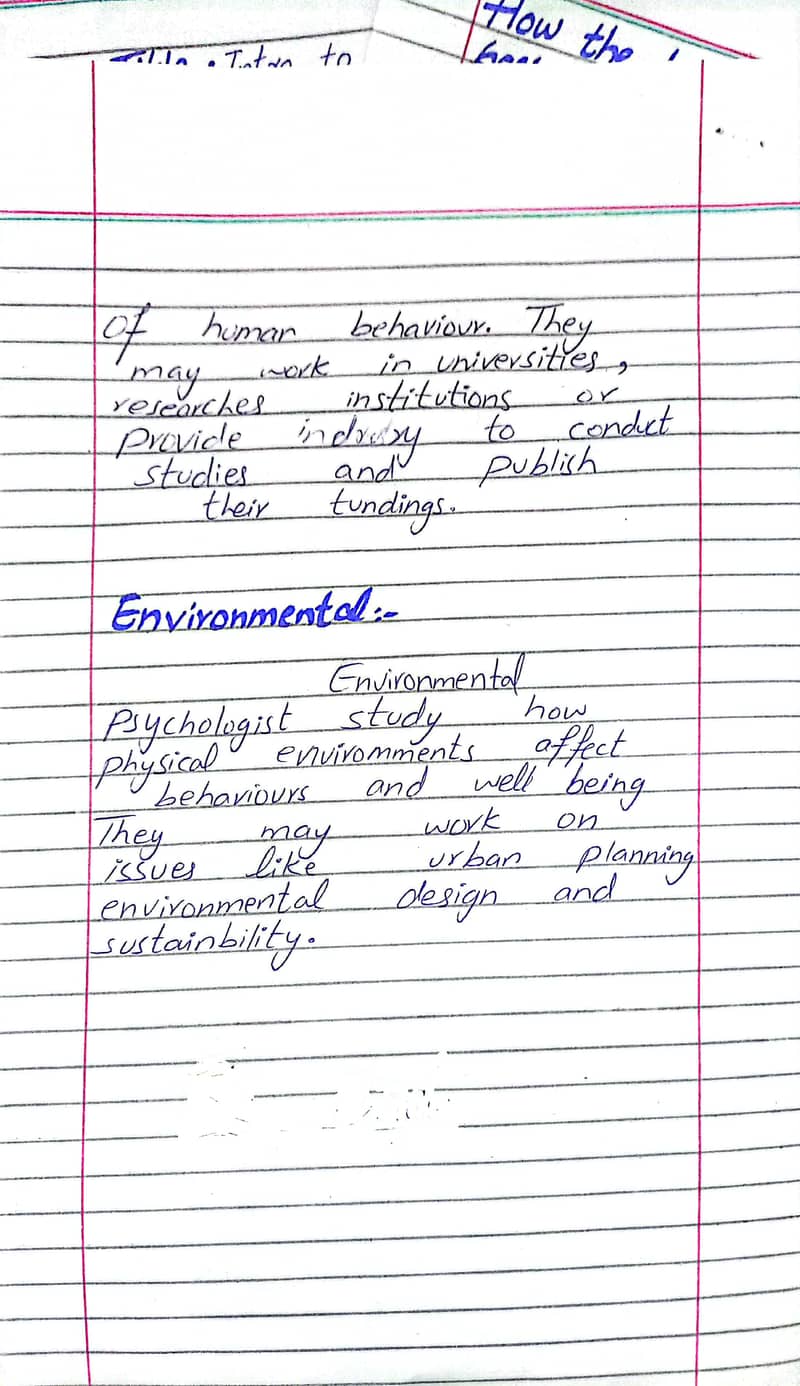 How the
to
of human behaviour. They
may work in universities,
researches institutions or
provide to conduct
studies and publish
their tundings.
Environmental:-
Environmental
Psychologist study how
physical enviromments affect
behaviours and well being
They may work on
issues like urban planning
environmental design and
sustainbility.